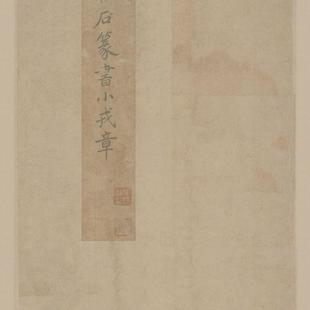 石篆書小戎章